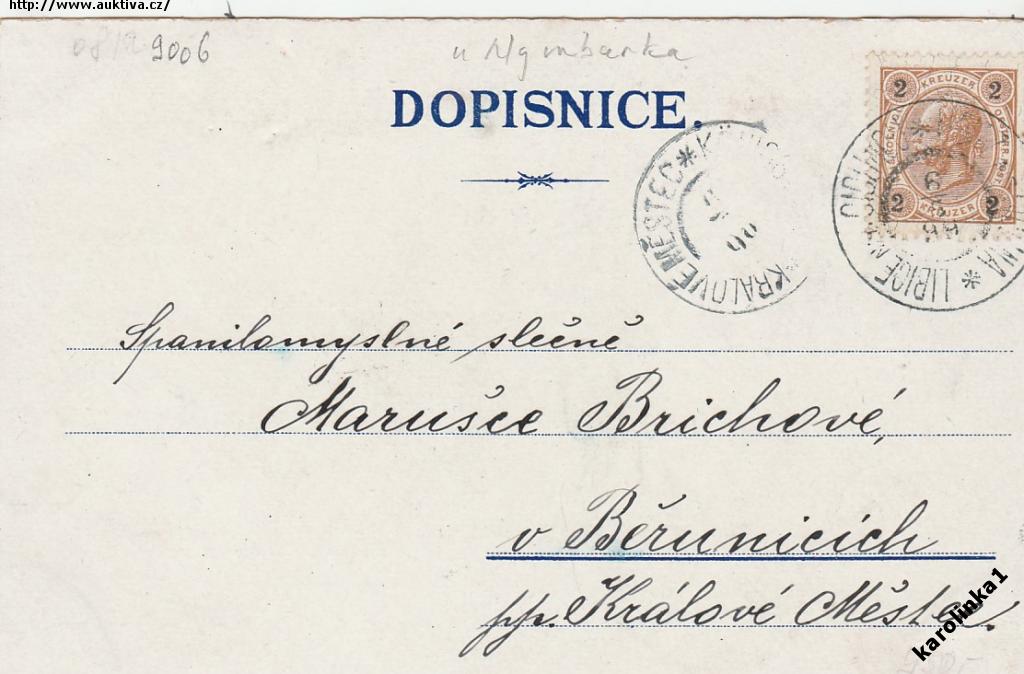 http://www.auktiva.cz/
9006
DOPISNICE.
2 KREUZER 2
2 KREUZER 2
KRÁLOVÉ MĚSTEC * KRÁLOVÉ
Spanilomyslné slečně
Marušce Brichové,
v Běrunicích
pp. Králové Městec.
karolinka1